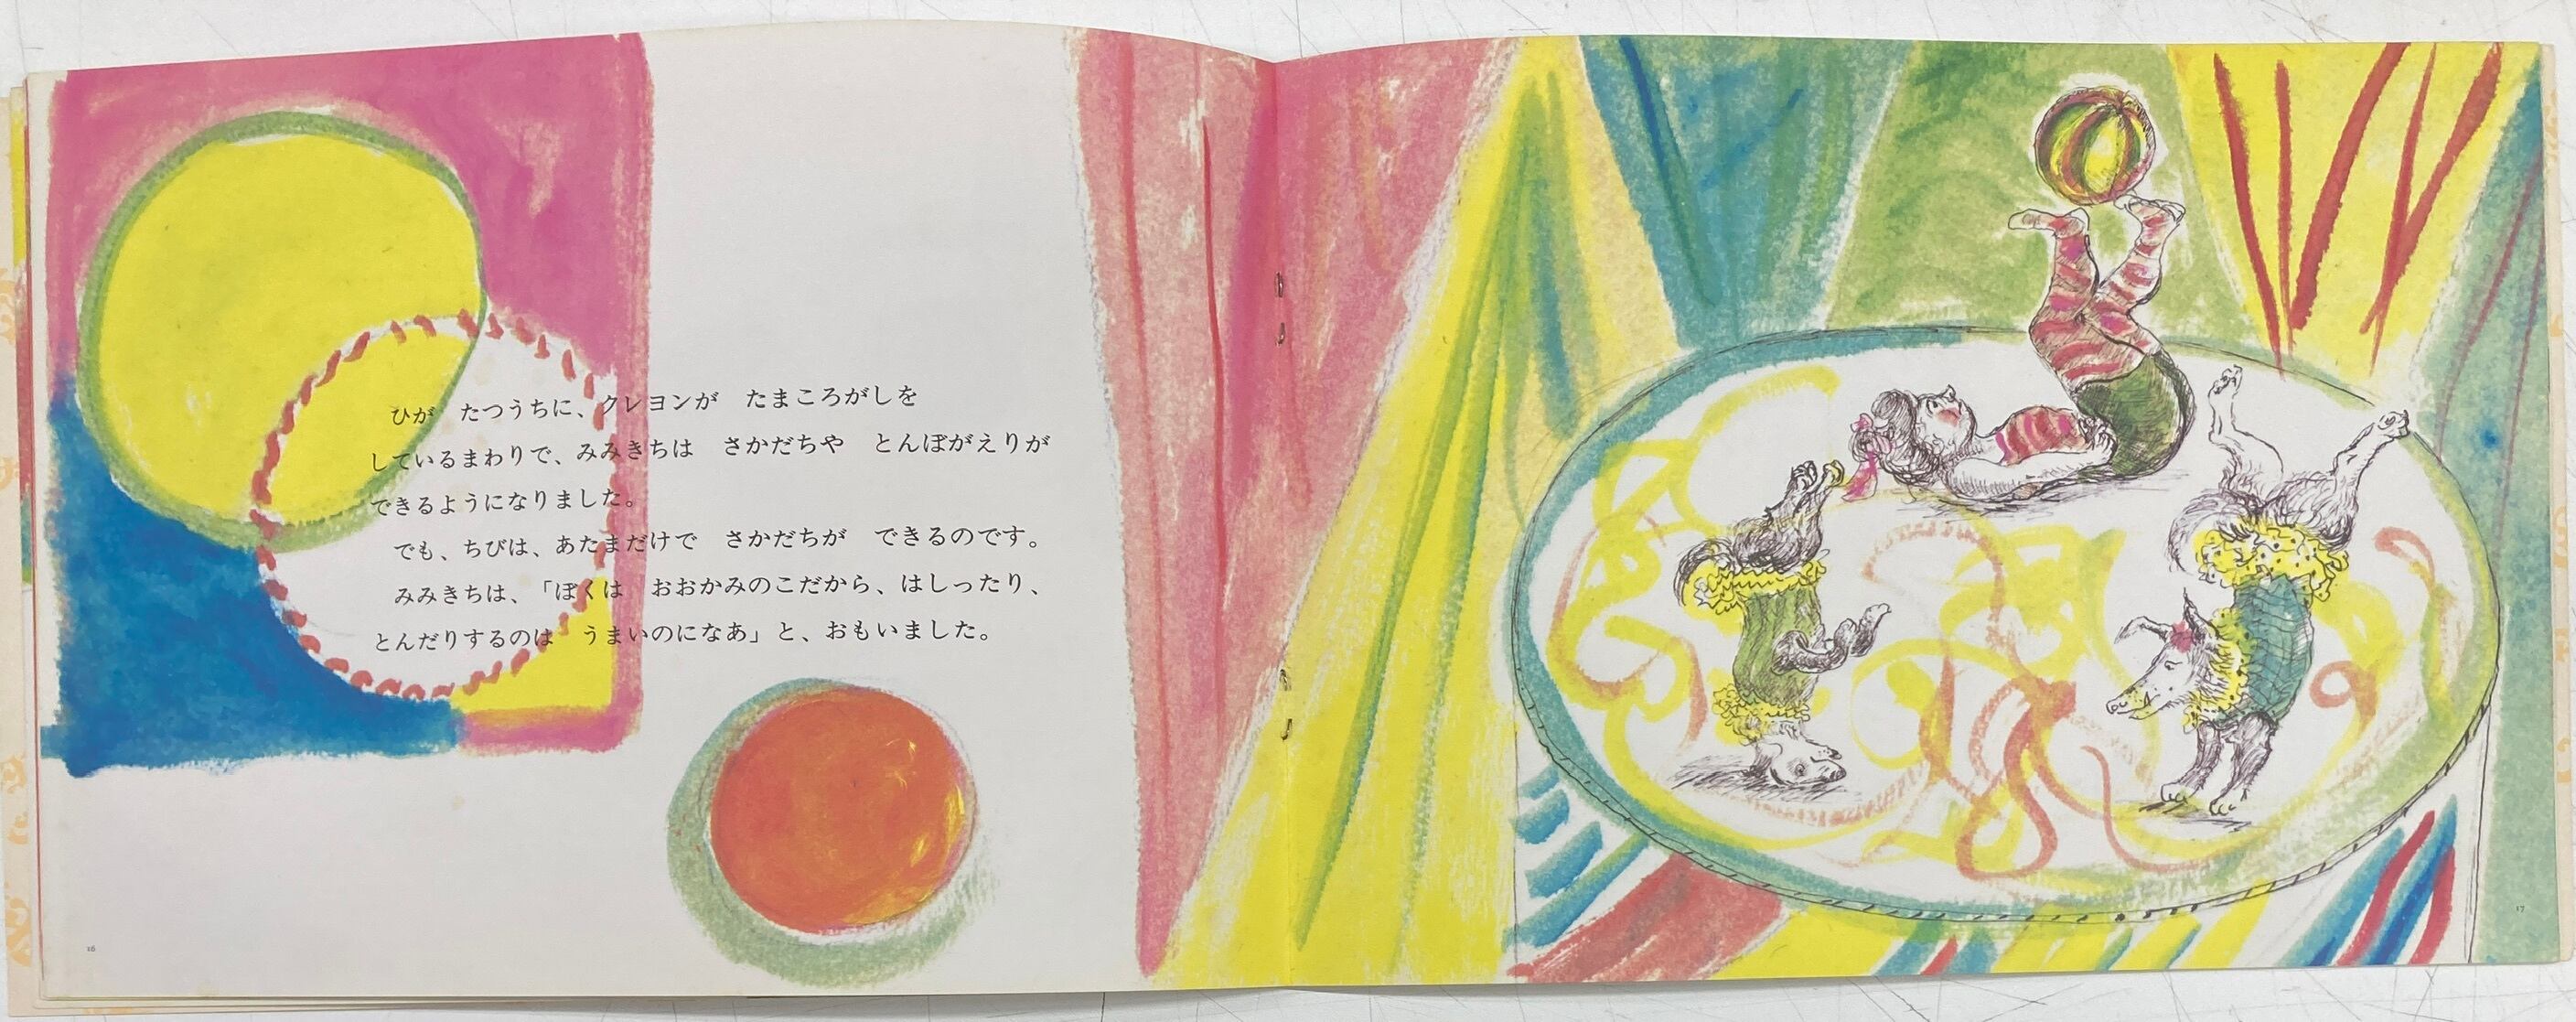 ひが　たつうちに、クレヨンが　たまころがしを
しているまわりで、みみきちは　さかだちや　とんぼがえりが
できるようになりました。
でも、ちびは、あたまだけで　さかだちが　できるのです。
みみきちは、「ぼくは　おおかみのこだから、はしったり、
とんだりするのは　うまいのになあ」と、おもいました。
16
17